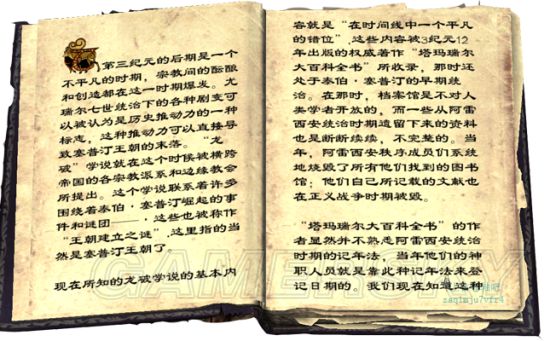 第三纪元的后期是一个
不平凡的时期，宗教间的酝酿
和创造都在这一时期爆发。尤
瑞尔七世统治下的各种剧变可
以被认为是历史推动力的一种
标志，这种推动力可以直接导
致塞普汀王朝的末落。“龙
破”学说就在这个时候被横跨
帝国的各宗教派系和边缘教会
所提出。这个学说联系着许多
围绕着泰伯·塞普汀崛起的事
件和谜团——.这些也被称作
“王朝建立之谜”，这里指的当
然是塞普汀王朝了。
现在所知的龙破学说的基本内
容就是“在时间线中一个平凡
的错位”这些内容被3纪元12
年出版的权威著作“塔玛瑞尔
大百科全书”所收录，那时还
处于泰伯·塞普汀的早期统
治。在那时，档案馆是不对人
类学者开放的，而一些从阿雷
西安统治时期遗留下来的资料
也是断断续续，不完整的。当
年，阿雷西安秩序成员们系统
地烧毁了所有他们找到的图书
馆；他们自己所记载的文献也
在正义战争时期被毁。
“塔玛瑞尔大百科全书”的作
者显然并不熟悉阿雷西安统治
时期的记年法，当年他们的神
职人员就是靠此种记年法来登
记日期的。我们现在知道这种
GAMERSKY
zaq1mju7vfr4